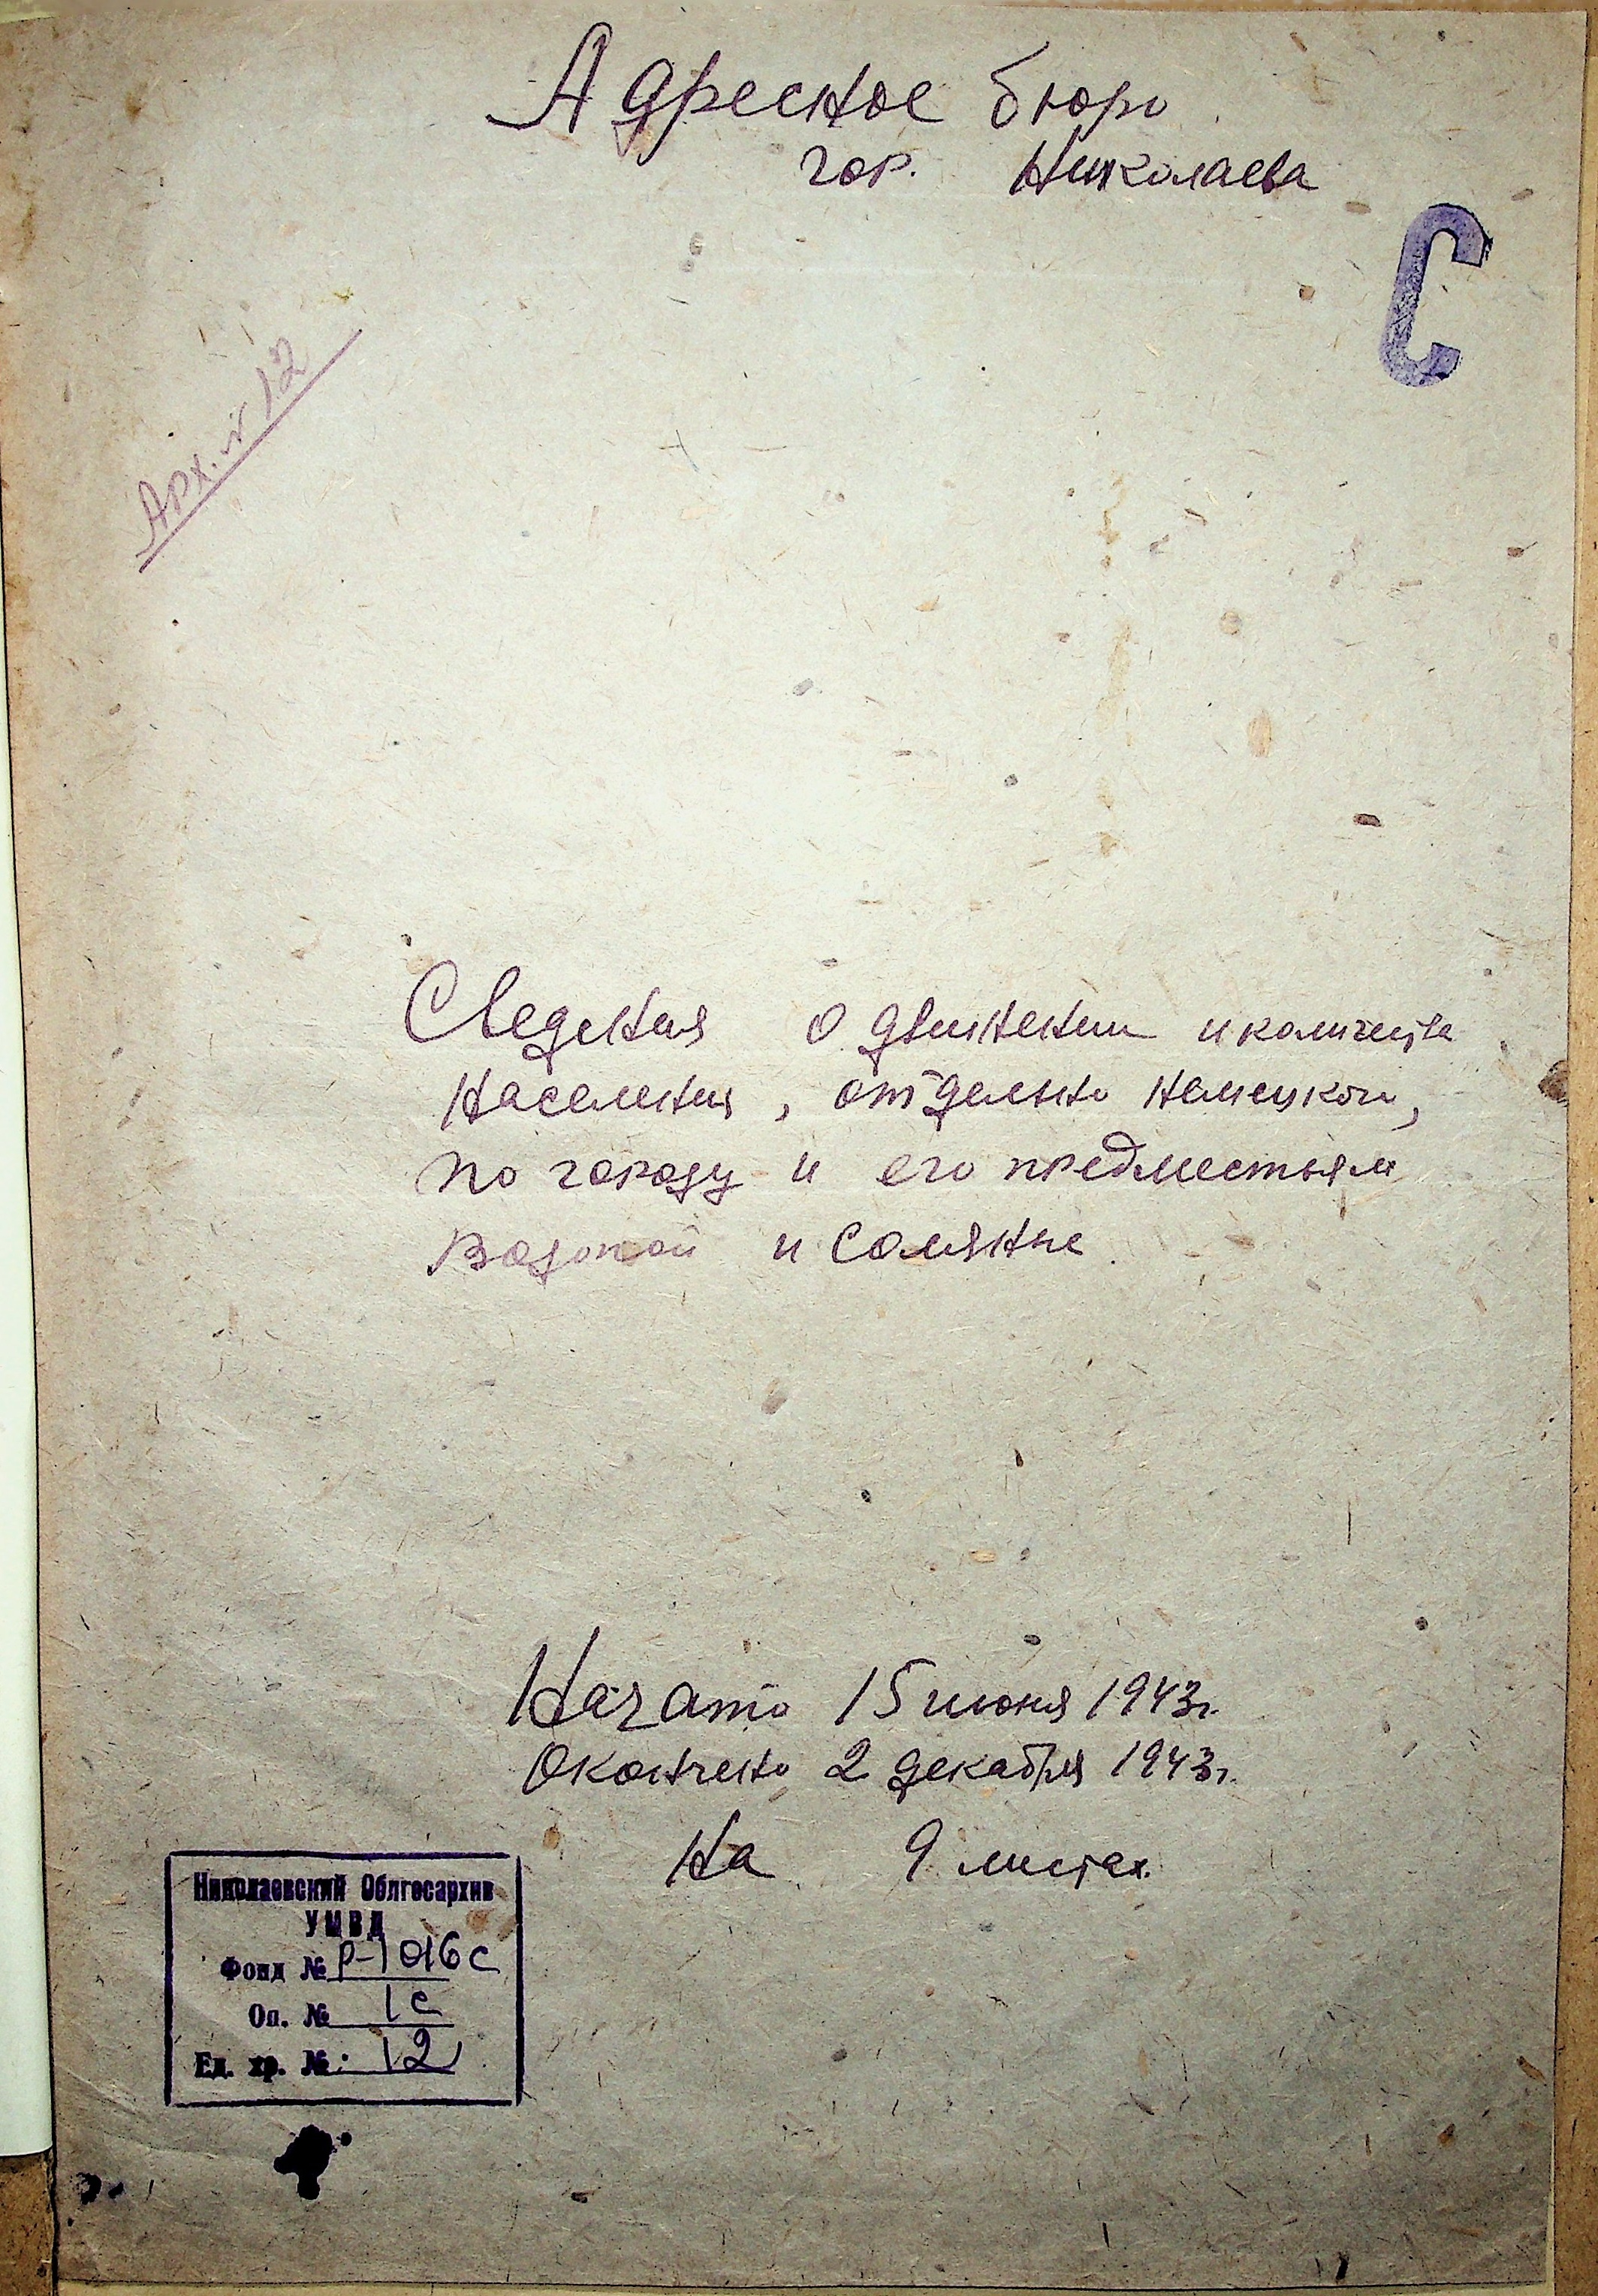 Адресное бюро
гор. Николаева
С
Арх. № 12
Сведения о движении и количестве
населения, отдельно немецкого,
по городу и его предместьям
Водопой и Соляные.
Начато 15 июня 1943 г.
Окончено 2 декабря 1943 г.
На 9 листах.
Николаевский Облгосархив
УМВД
Фонд № Р-1016с
Оп. № 1с
Ед. хр. №: 12